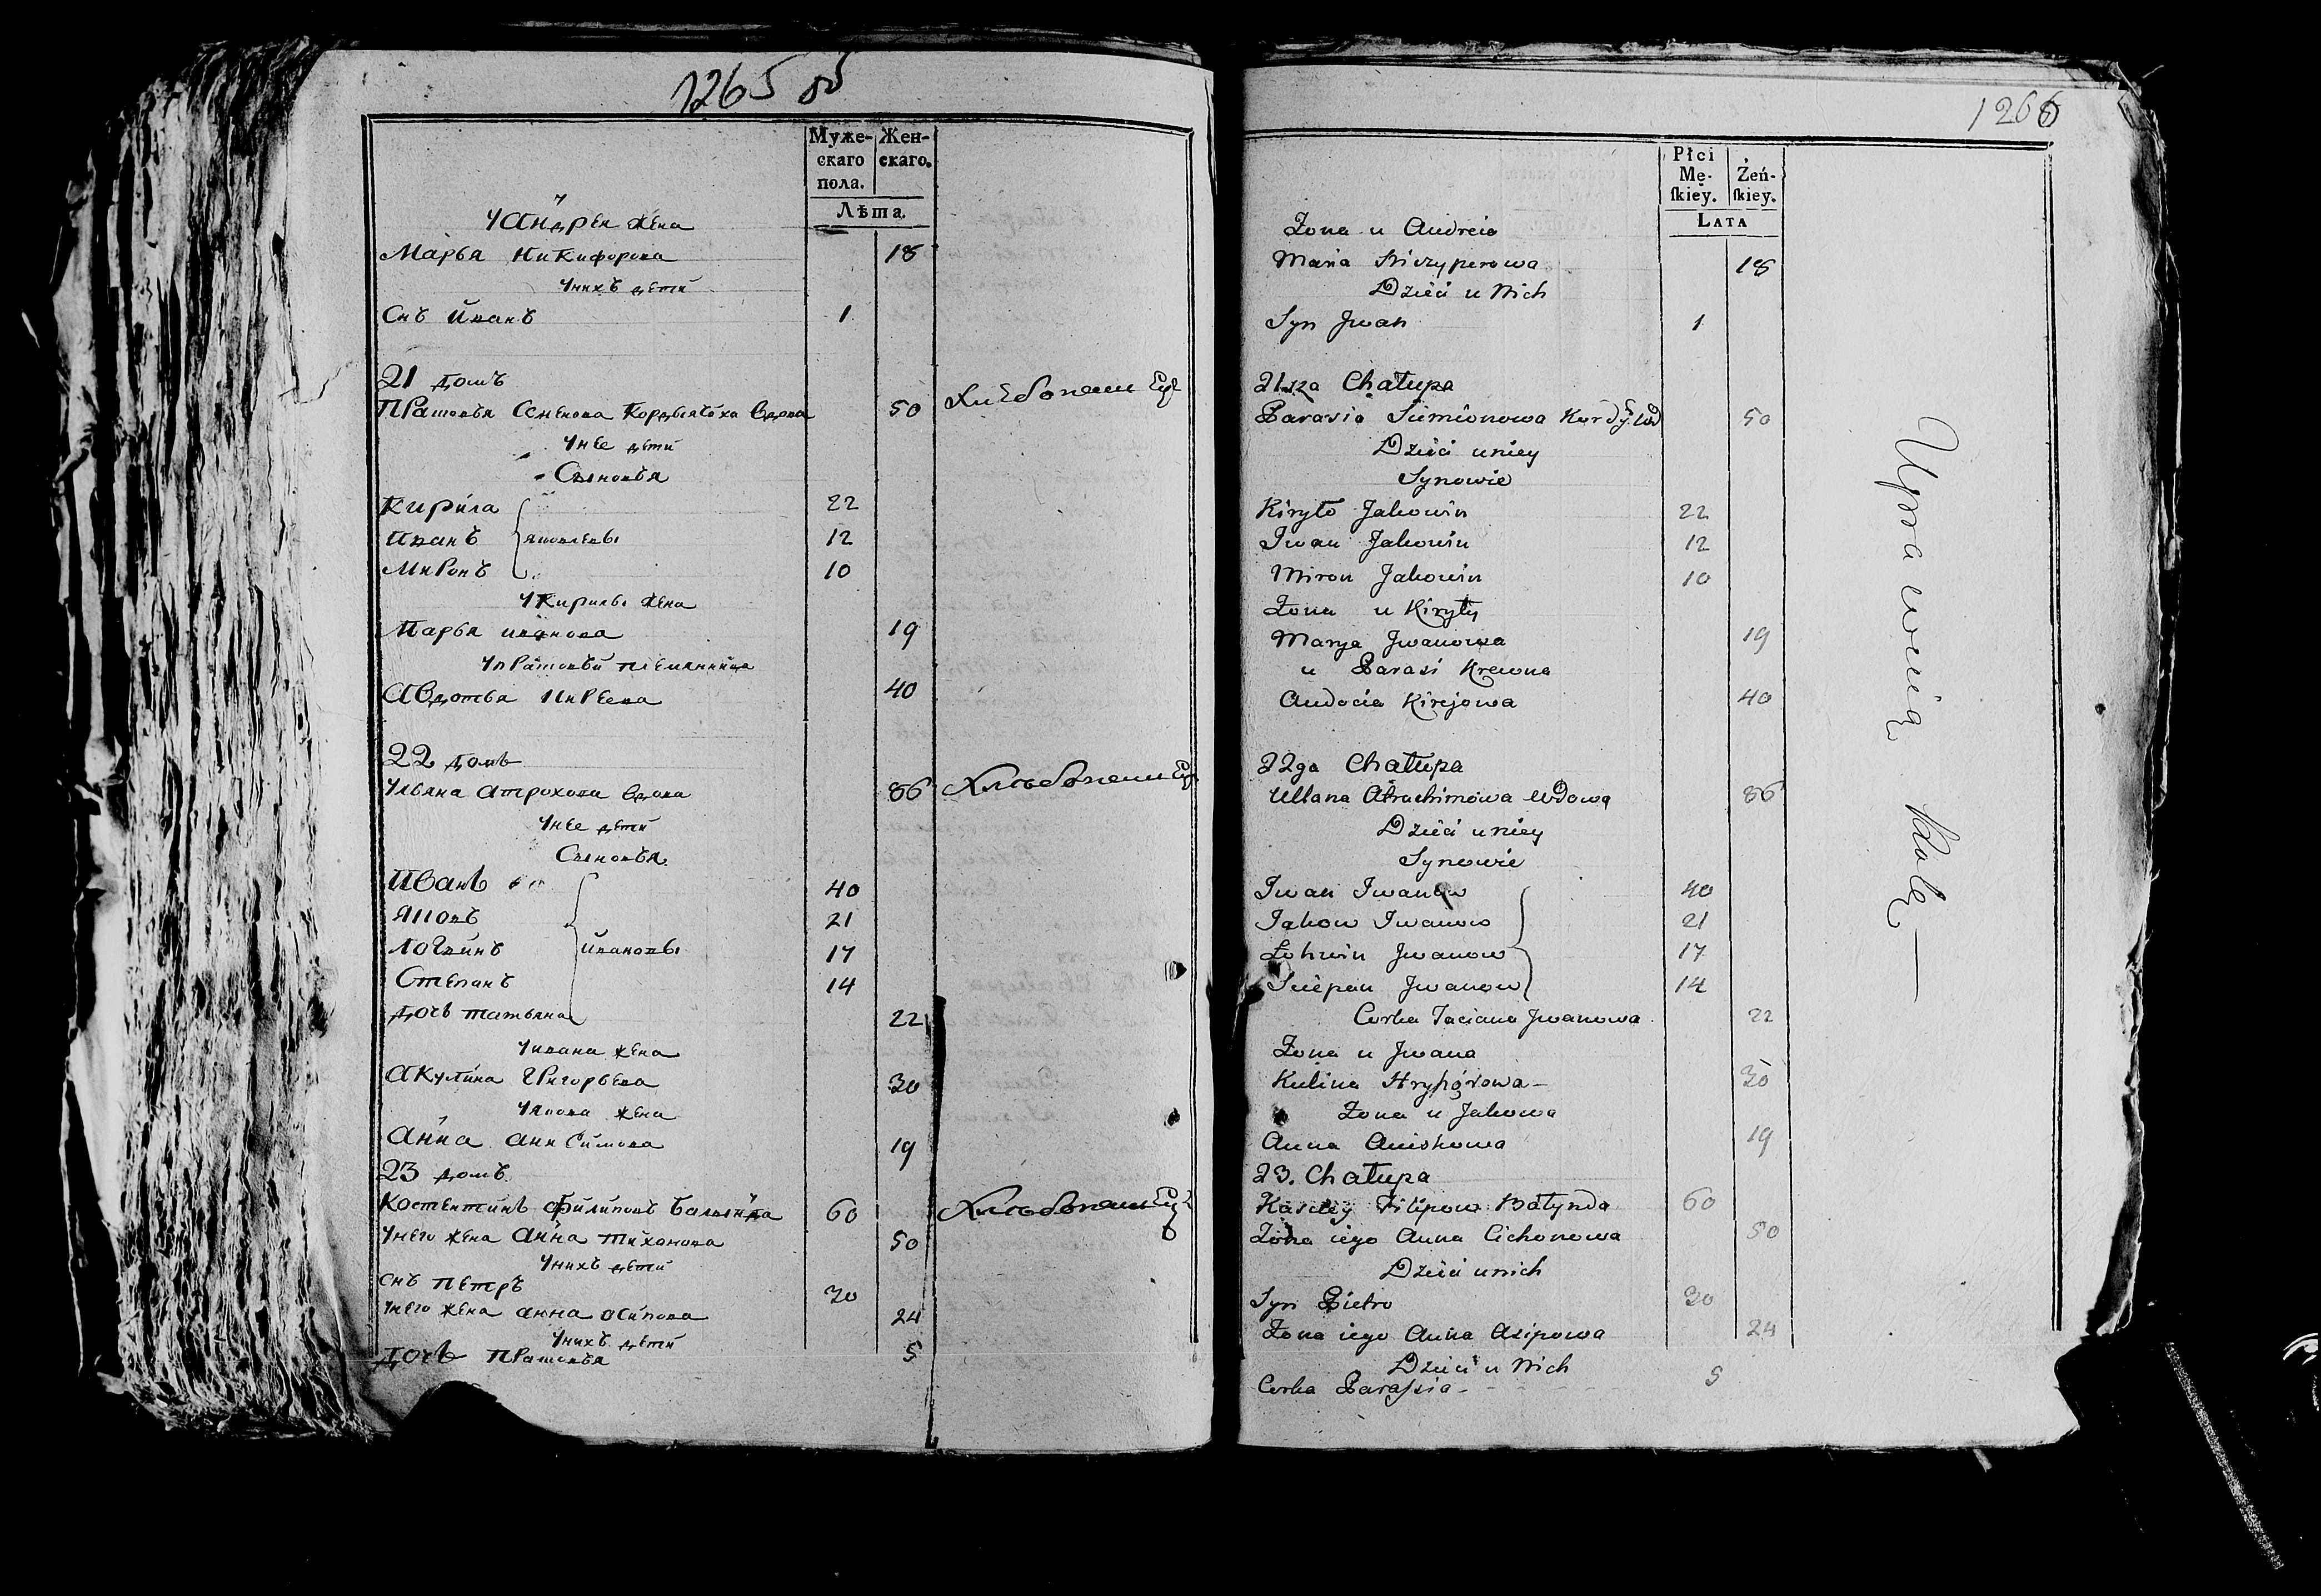 1265 об
Муже-
скаго
пола.
Жен-
скаго.
Лѣта.
У Андрея жена
Марья Никифорова 18
У нихъ дети
Снъ Иванъ 1
21 домъ
Прасковья Семенова Кордыячиха вдова 50 Хлебопашец
У нее дети
Сыновья
Кирила 22
Иванъ Яковлевы 12
Миронъ 10
У Кирилы жена
Марья Иванова 19
У Прасковьи племянница
Авдотья Кирeева 40
22 домъ
Ульяна Атрохова вдова 86 Хлебопашец
У нее дети
Сыновья
Иванъ 40
Яковъ 21
Логвинъ Ивановы 17
Степанъ 14
дочь Татьяна 22
У Ивана жена
Акулина Григорьева 30
У Якова жена
Анна Анисимова 19
23 домъ
Костентинъ Филиповъ Балында 60 Хлебопашец
У него жена Анна Тиханова 50
У нихъ дети
Снъ Петръ 30
У него жена Анна Осипова 24
У нихъ дети
Дочь Прасковья 5
1266
Płci
Mę-
ſkiey.
Żeń-
ſkiey.
LATA
Żona u Andreia
Maria Niczyperowa 18
Dzieci u Nich
Syn Jwan 1
21sza Chałupa
Parasia Siemionowa Kordy. Wd 50
Dzieci u niey
Synowie
Kiryło Jakowin 22
Iwan Jakowin 12
Miron Jakowin 10
Żona u Kiryły
Marya Jwanowa 19
u Parasi Krewna
Audocia Kirejowa 40
22ga Chałupa
Ullana Atrachimowa Wdowa 86
Dzieci u niey
Synowie
Iwan Iwanow 40
Jakow Iwanow 21
Łohwin Jwanow 17
Sciepan Jwanow 14
Corka Taciana Jwanowa 22
Żona u Jwana
Kulina Hryhórowa - 30
Żona u Jakowa
Anna Aniskowa 19
23. Chałupa
Filipow Bałynda 60
Żona iego Anna Cichonowa 50
Dzieci u nich
Syn Pietro 30
Żona iego Anna Asipowa 24
Dzieci u Nich
Corka Parasia - 5
Uprawnią Rolę —